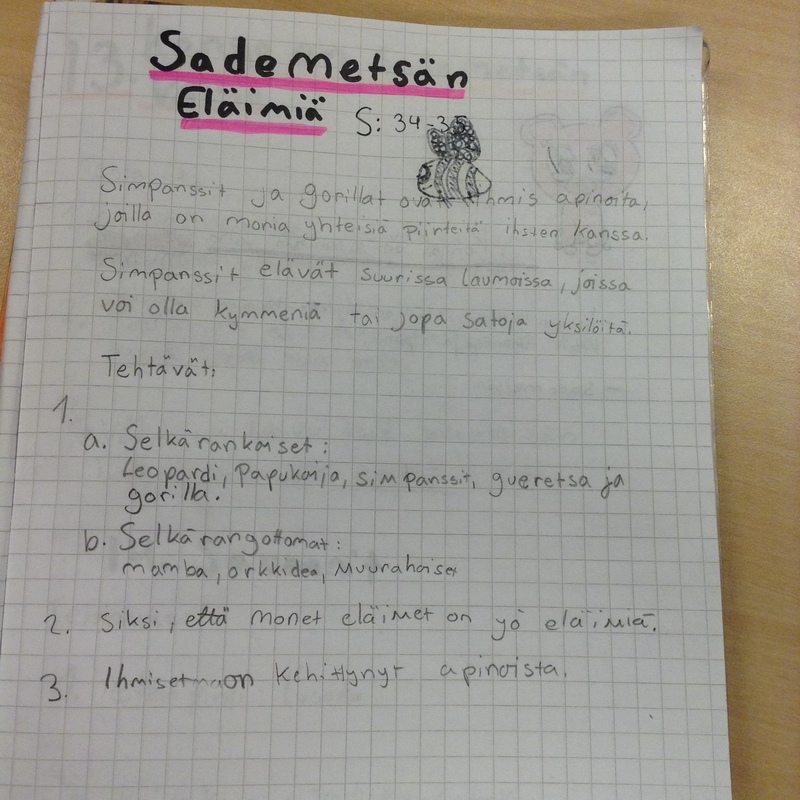 SadeMetsän
Eläimiä S: 34-35
Simpanssit ja gorillat ovat ihmis apinoita,
joilla on monia yhteisiä piirteitä ihsten kanssa.
Simpanssit elävät suurissa laumoissa, joissa
voi olla kymmeniä tai jopa satoja yksilöitä.
Tehtävät:
1.
a. Selkärankaiset:
Leopardi, Papukaija, simpanssit, gueretsa ja
gorilla.
b. Selkärangottomat:
mamba, orkkidea, Muurahaiset
2. Siksi, että monet eläimet on yö eläimiä.
3. Ihmiset on kehittynyt apinoista.